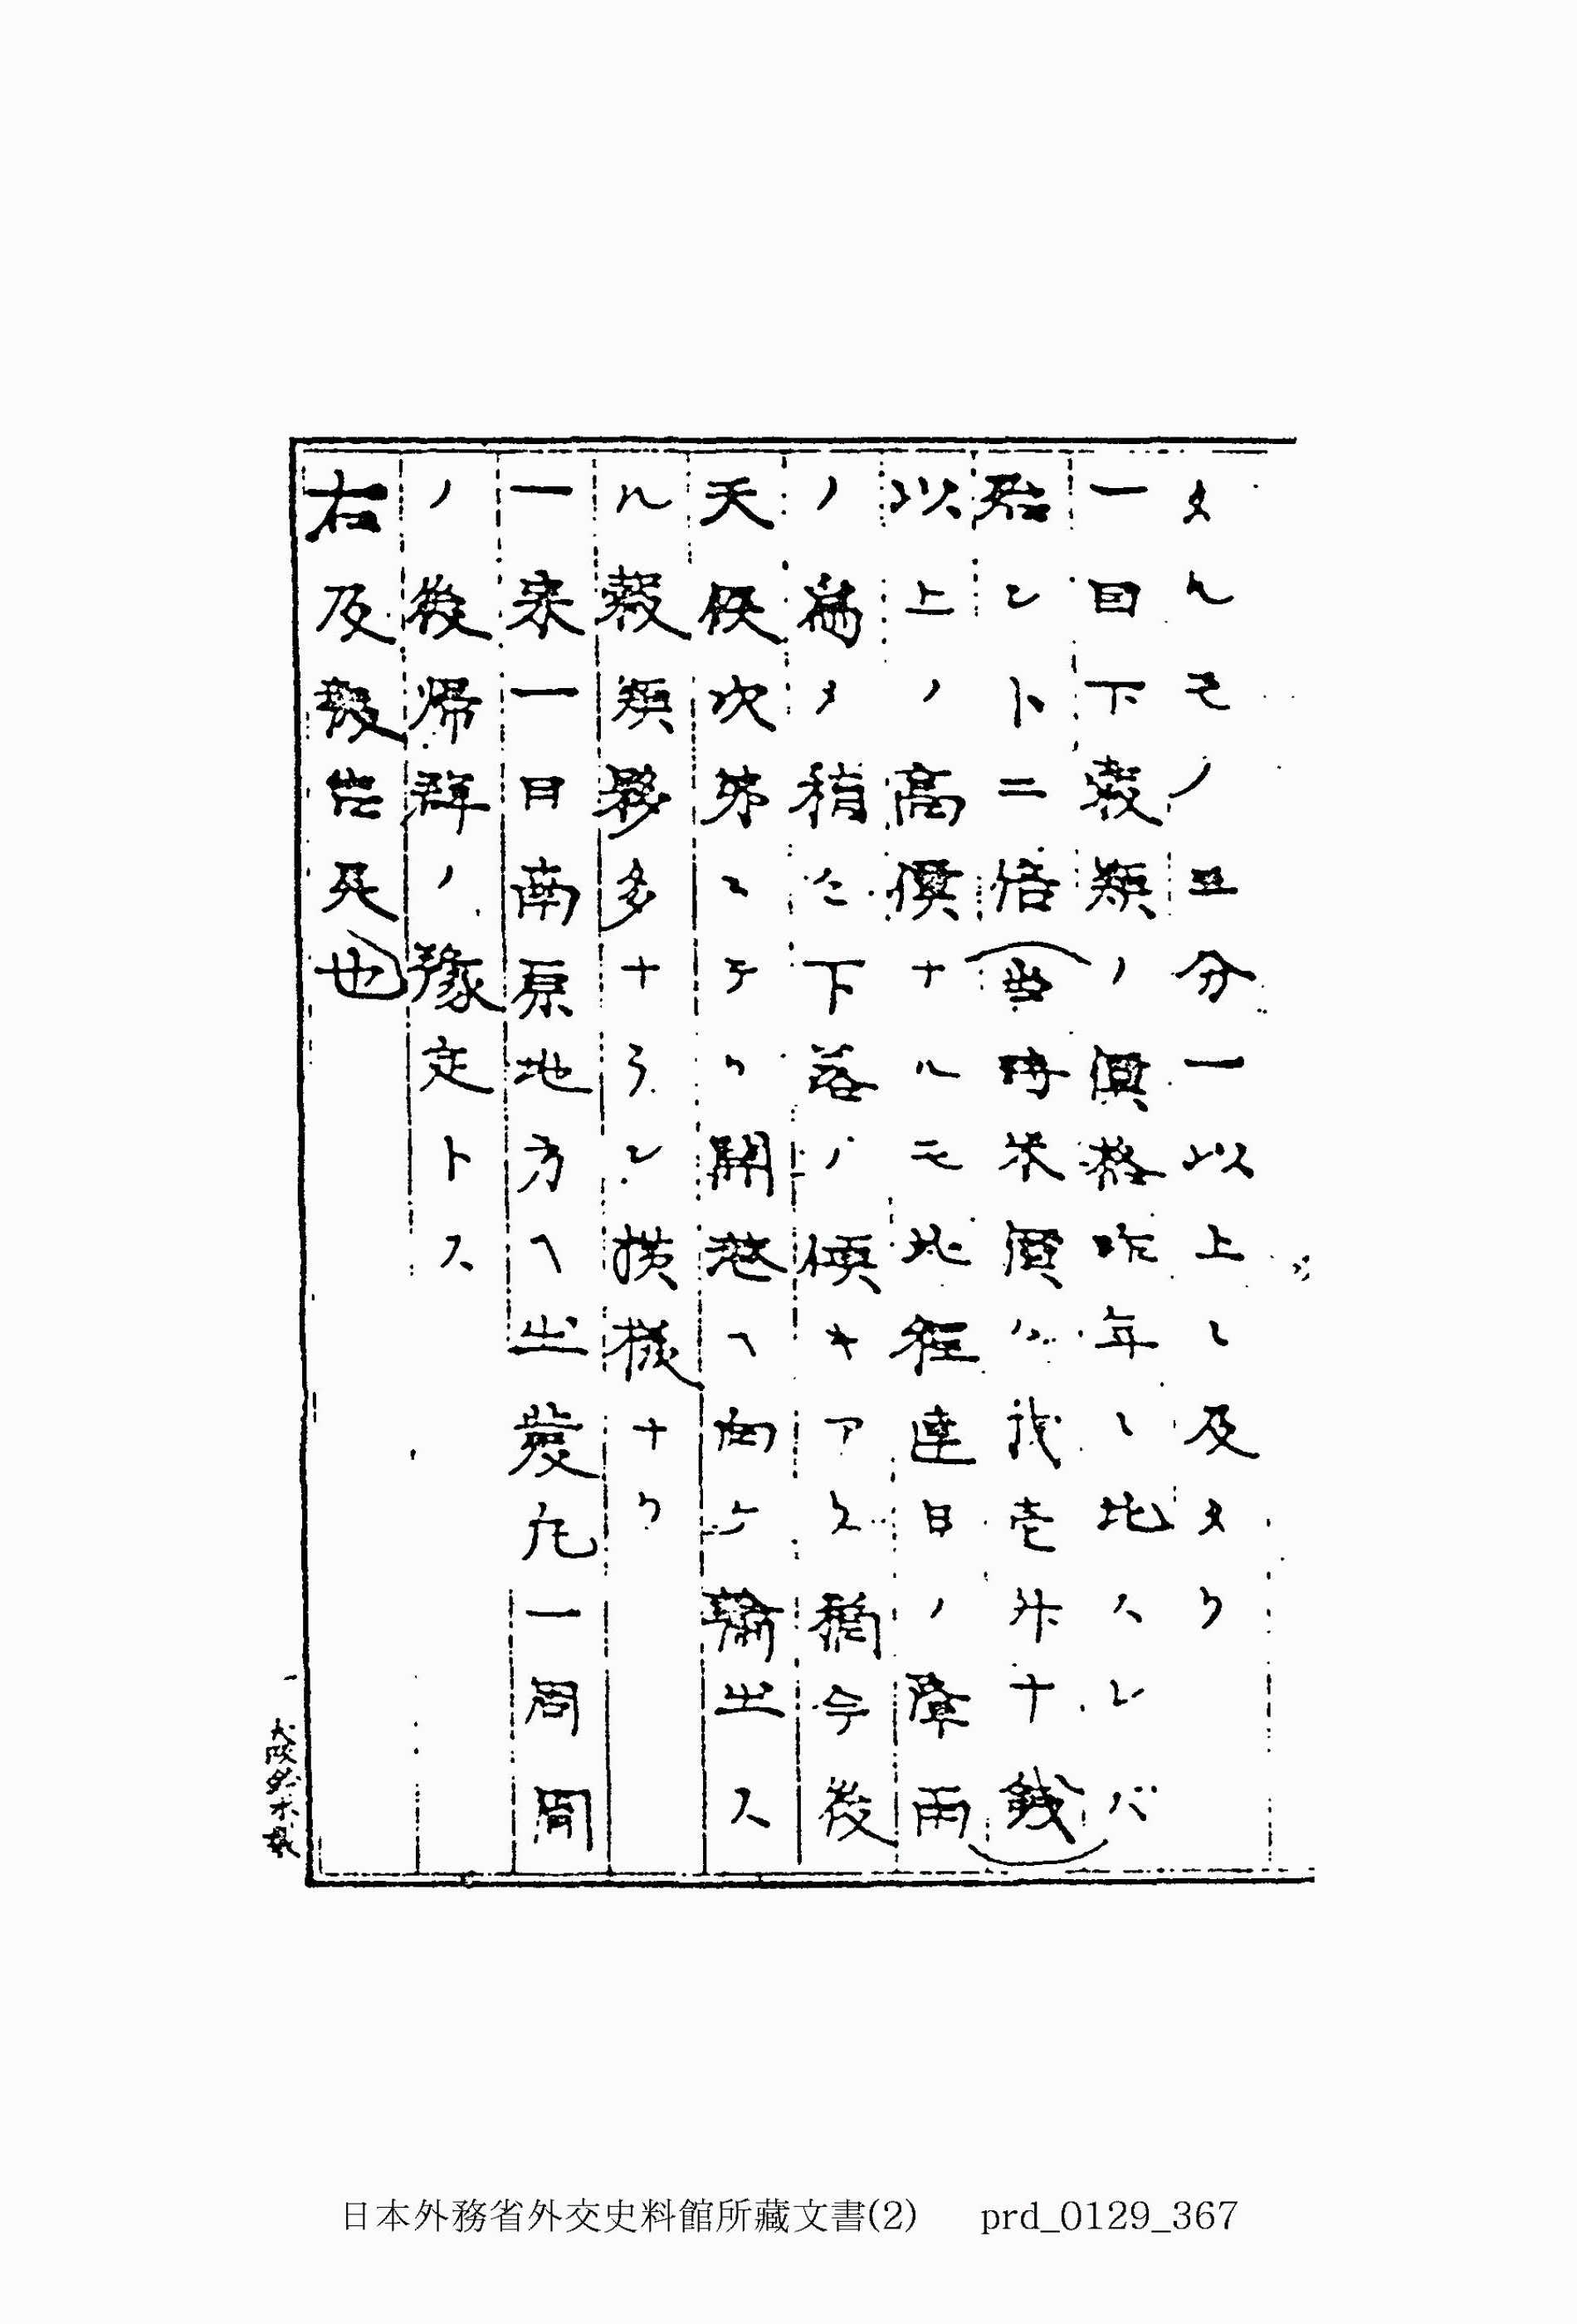 タルモノ五分一以上ニ及タリ
一目下穀類ノ價格昨年ニ比スレバ
殆ント二倍（當時米價ハ我壱升十銭
以上ノ高價ナルモ此程連日ノ降雨
ノ為メ稍々下落ノ傾キアレ𪜈今後
天候次第ニテハ開港ヘ向ケ輸出ス
ル穀類夥多ナラン模様ナリ
一来一日南原地方ヘ出発凡一周間
ノ後帰群ノ豫定トス
右及報告候也
日本外務省外交史料館所藏文書(2) prd_0129_367